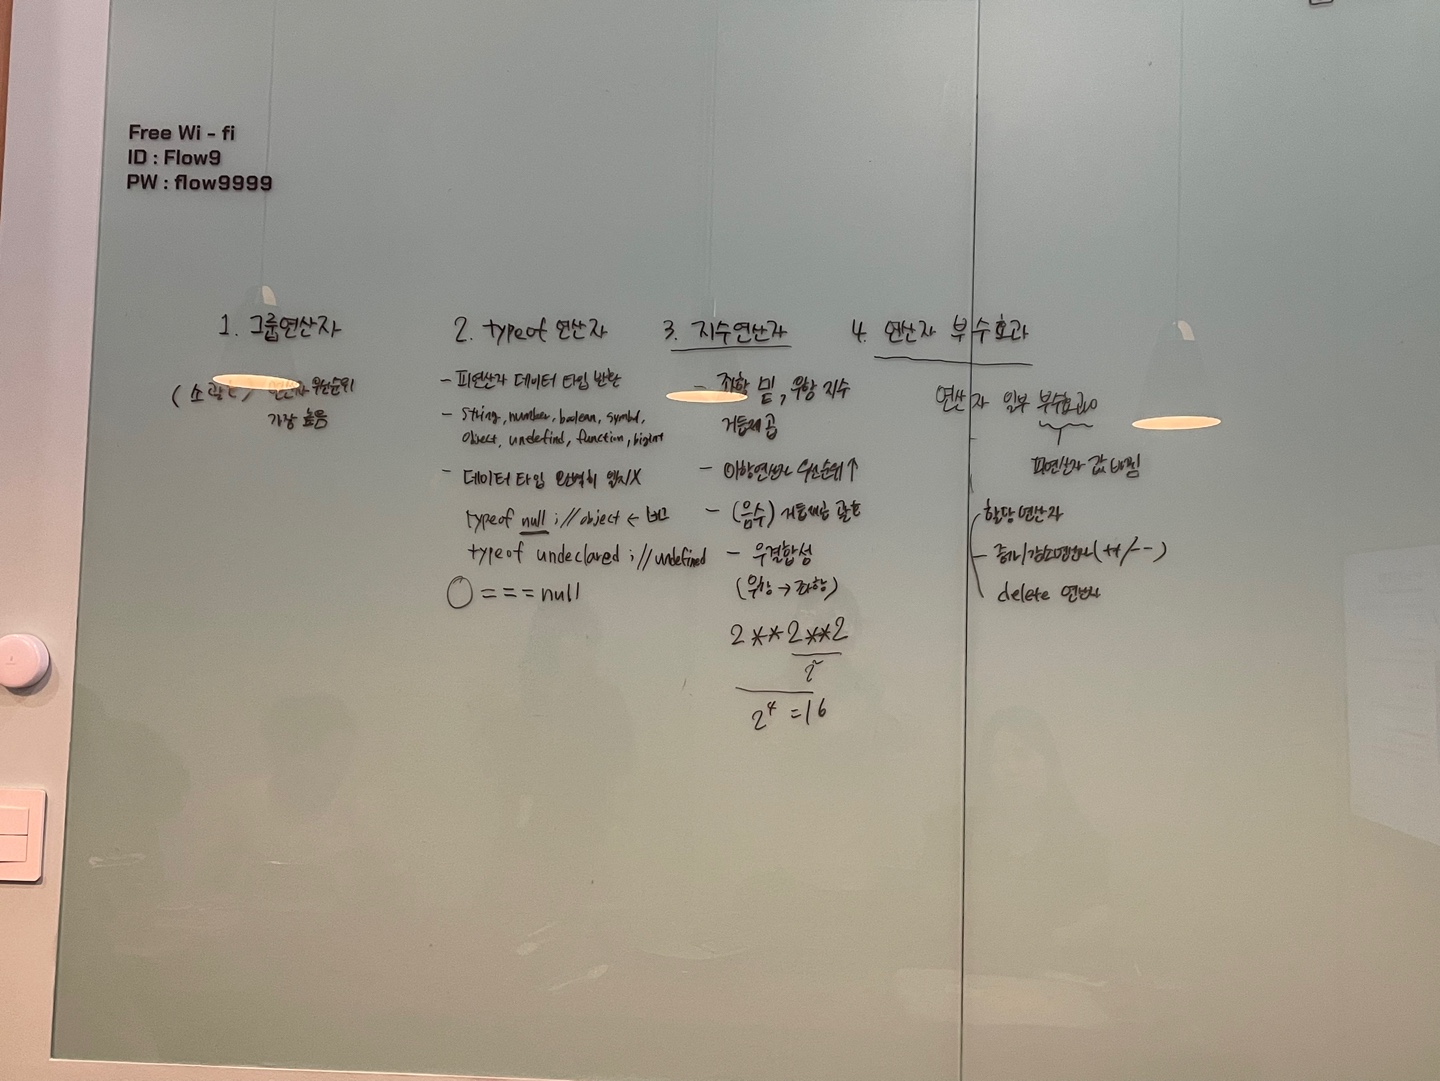 Free Wi - fi
ID : Flow9
PW : flow9999
1. 그룹연산자
(소괄호) 연산자 우선순위
가장 높음
2. typeof 연산자
- 피연산자 데이터 타입 반환
- String, number, boolean, symbol,
object, undefind, function, bigint
- 데이터 타입 완벽히 일치X
typeof null ; //object ← 버그
typeof undeclared ; //undefined
○ === null
3. 지수연산자
- 좌항 밑, 우항 지수
거듭제곱
- 이항연산자 우선순위↑
- (음수) 거듭제곱 괄호
- 우결합성
(우항 → 좌항)
2 ** 2 ** 2
2²
2⁴ = 16
4. 연산자 부수효과
연산자 일부 부수효과o
피연산자 값 바뀜
할당 연산자
증가/감소연산자(++/--)
delete 연산자